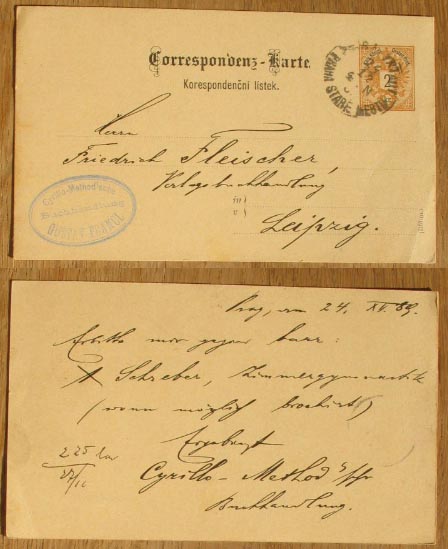 Correspondenz-Karte.
Korespondenční lístek.
2
PRAHA STARÉ MĚSTO
Herrn
Friedrich Fleischer,
Verlagsbuchhandlung
in
v
Leipzig.
Cyrillo-Method'sche
Buchhandlung
GUSTAV FRANCL
Prag, am 24. XII. 89.
Erbitte mir gegen baar:
1 Schreber, Zimmergymnastik
(wenn möglich brochirt)
Ergebenst
Cyrillo-Method'sche
Buchhandlung.
2 25 bar